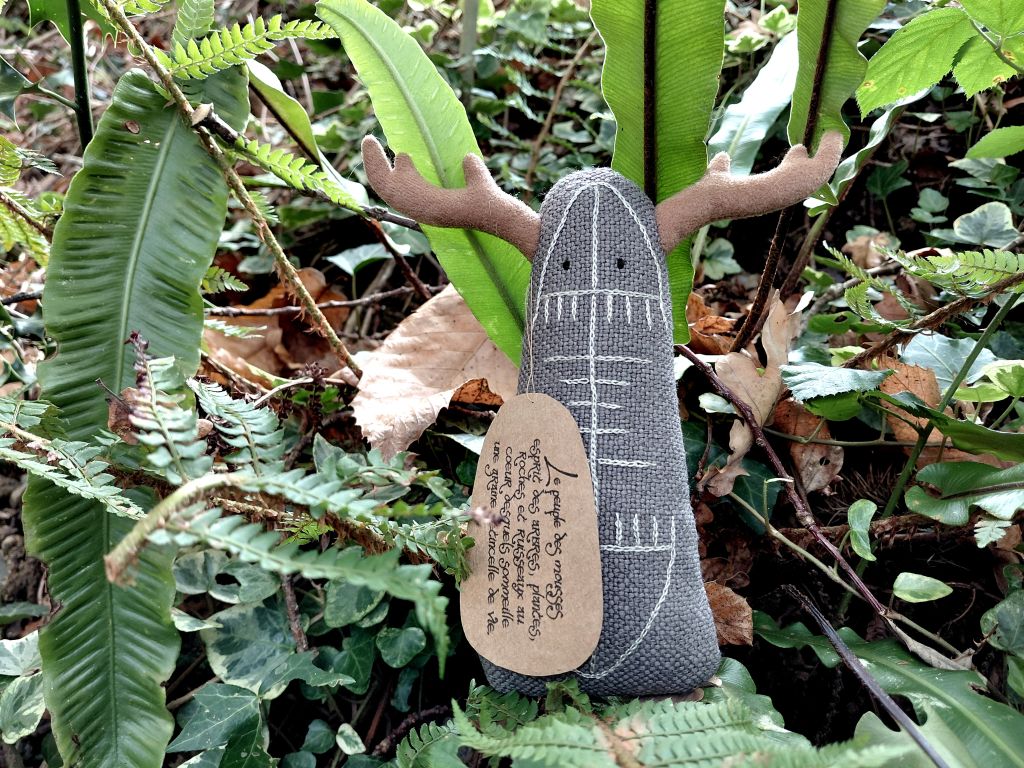 Le peuple des mousses
esprit des arbres, plantes,
Roches et Ruisseaux au
coeur desquels sommeille
une graine étincelle de vie.